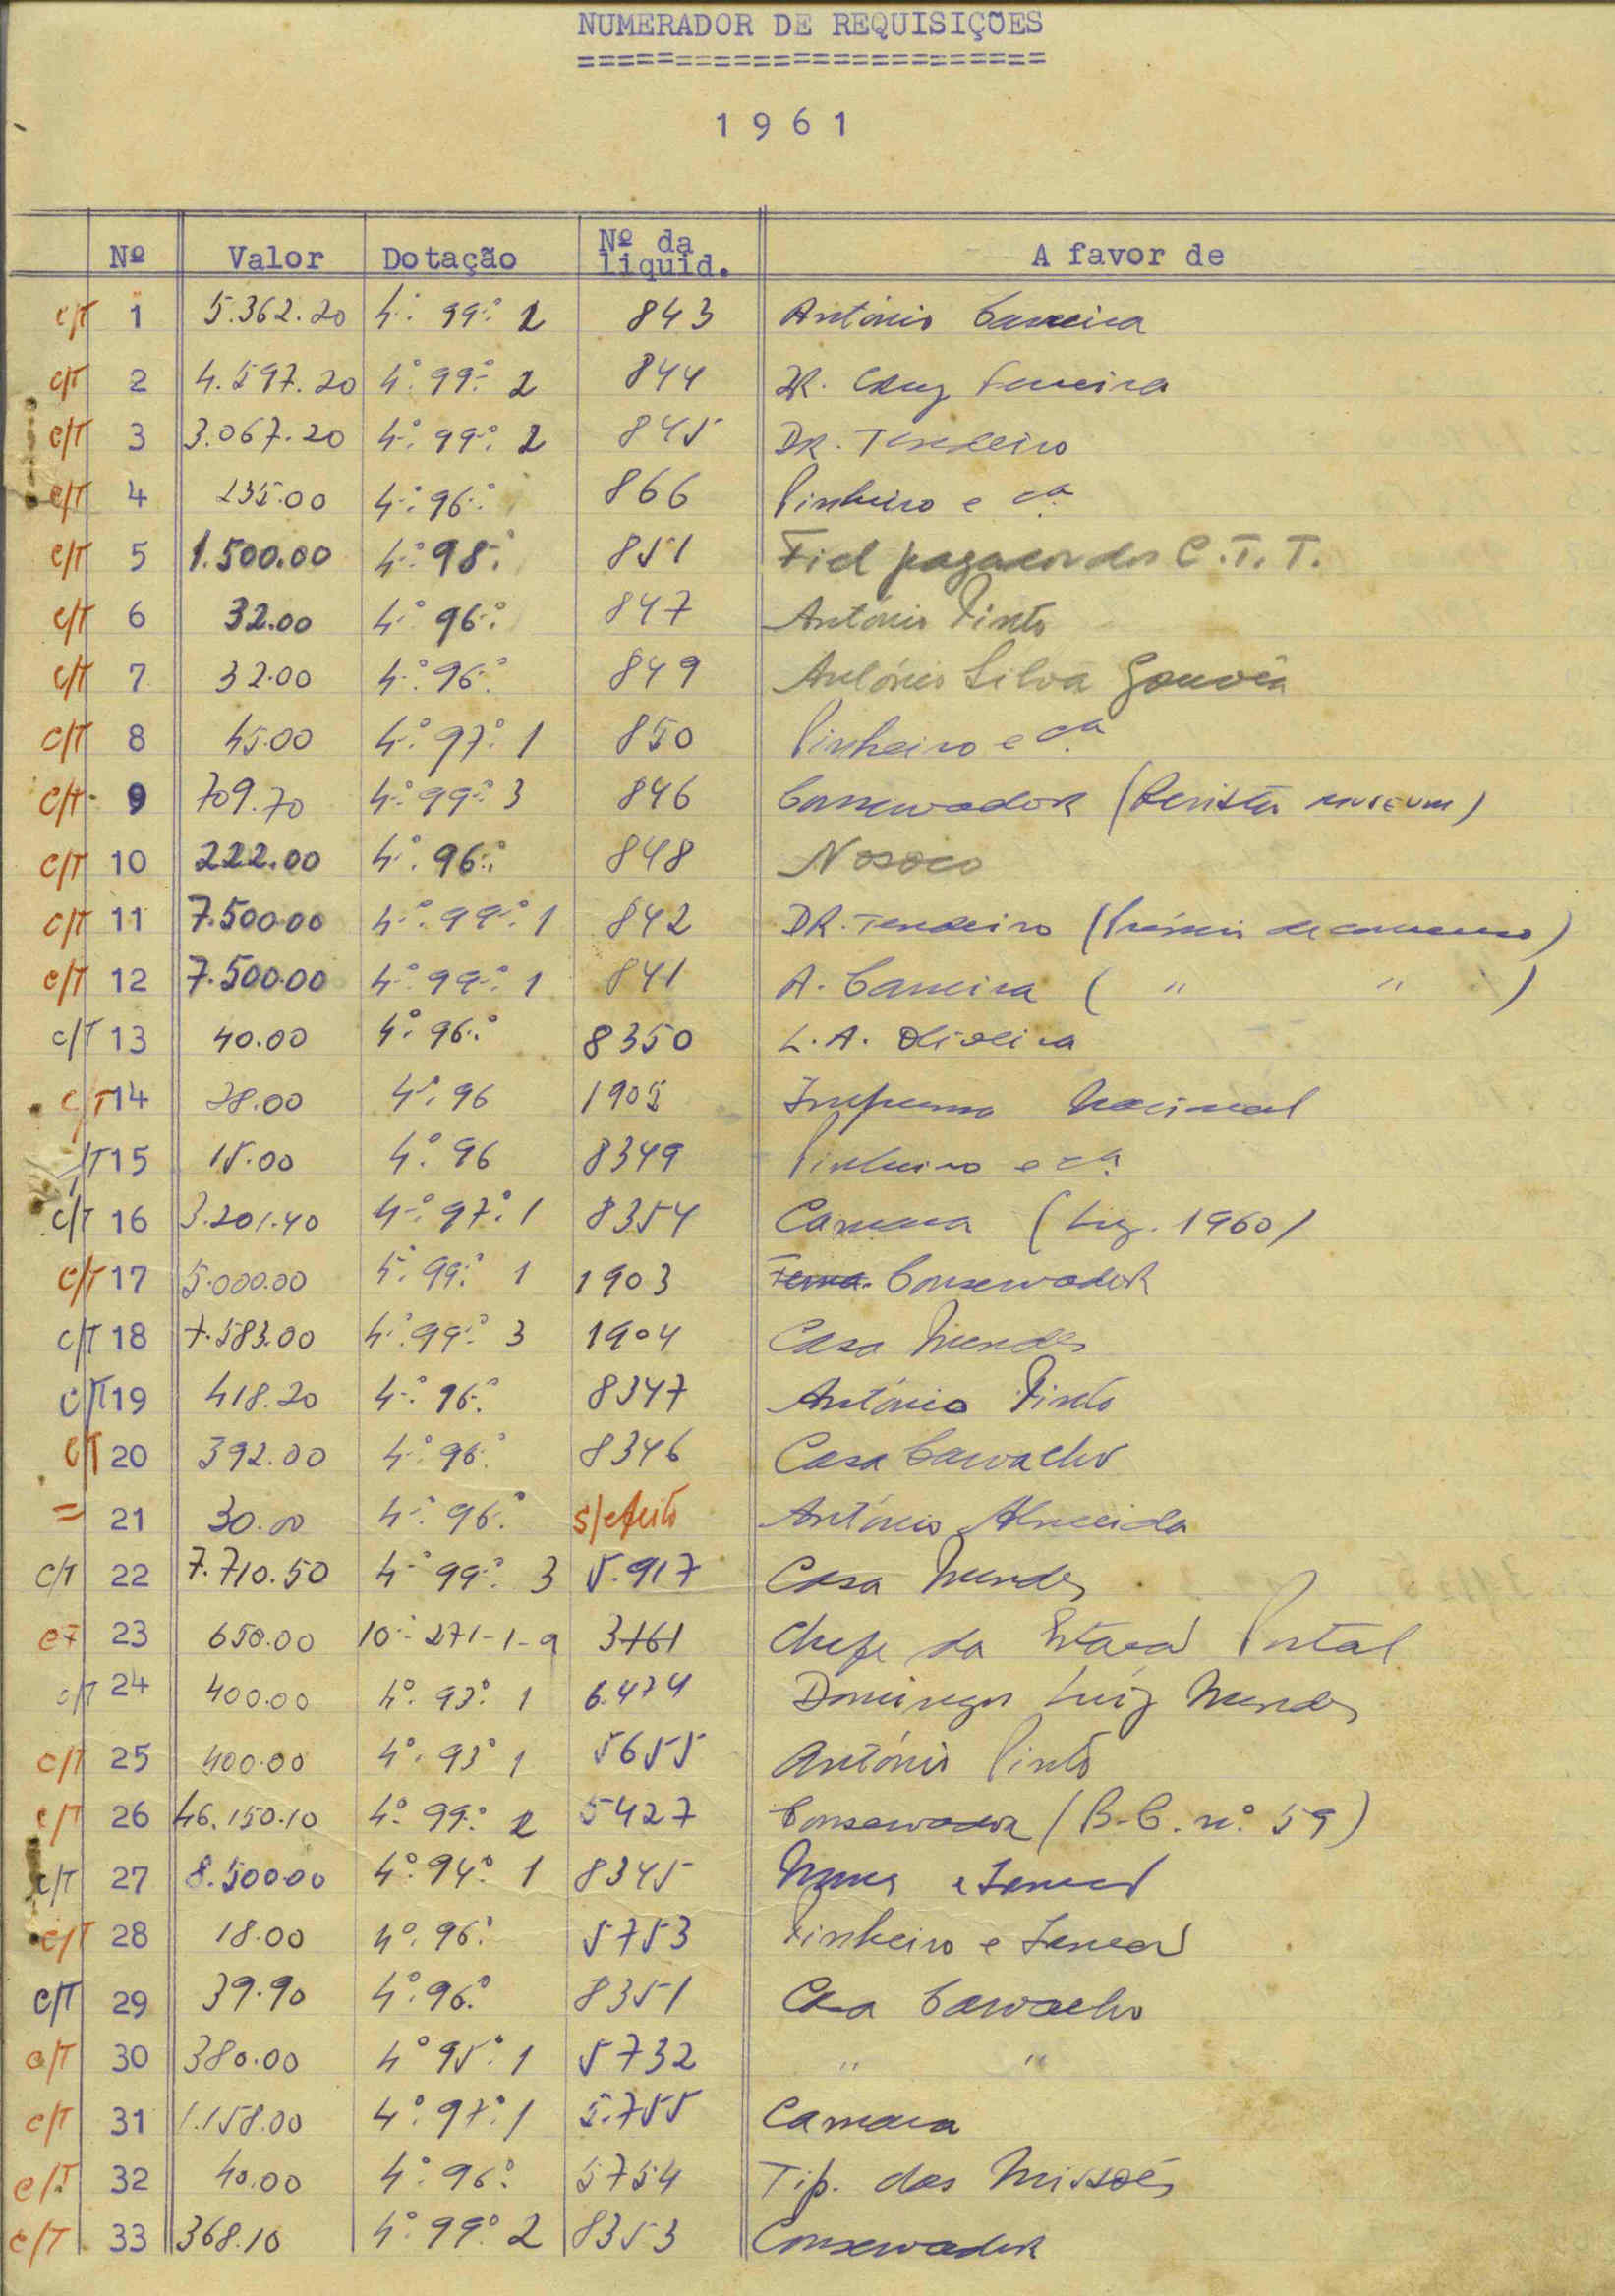 NUMERADOR DE REQUISIÇÕES
=======================
1 9 6 1
Nº Valor Dotação Nº da liquid. A favor de
c/T 1 5.362.20 4.º 99.º 2 843 António Carreira
c/T 2 4.597.20 4.º 99.º 2 844 DR. Cruz Ferreira
c/T 3 3.067.20 4.º 99.º 2 845 DR. Tendeiro
c/T 4 235.00 4.º 96.º 866 Pinheiro e Cª
c/T 5 1.500.00 4.º 98.º 851 Fiel pagador dos C.T.T.
c/T 6 32.00 4.º 96.º 847 António Pinto
c/T 7 32.00 4.º 96.º 849 António Silva Gouvêa
c/T 8 45.00 4.º 97.º 1 850 Pinheiro e Cª
c/T 9 709.70 4.º 99.º 3 846 Conservador (Revista museum)
c/T 10 222.00 4.º 96.º 848 Nosoco
c/T 11 7.500.00 4.º 99.º 1 842 DR. Tendeiro (Prémio de concurso)
c/T 12 7.500.00 4.º 99.º 1 841 A. Carreira ( " " )
c/T 13 40.00 4.º 96.º 8350 L. A. Oliveira
c/T 14 28.00 4.º 96 1905 Imprensa Nacional
c/T 15 15.00 4.º 96 8349 Pinheiro e Cª
c/T 16 3.201.40 4.º 97.º 1 8354 Camara (Luz. 1960)
c/T 17 5.000.00 5.º 99.º 1 1903 Conservador
c/T 18 7.583.00 4.º 99.º 3 1904 Casa Mendes
c/T 19 418.20 4.º 96.º 8347 António Pinto
c/T 20 392.00 4.º 96.º 8346 Casa Carvalho
= 21 30.00 4.º 96.º s/efeito António Almeida
c/T 22 7.710.50 4.º 99.º 3 5.917 Casa Mendes
c/T 23 650.00 10.º 271-1-a 3761 Chefe da Estação Postal
c/T 24 400.00 4.º 93.º 1 6.474 Domingos Luiz Mendes
c/T 25 400.00 4.º 93º 1 5655 António Pinto
c/T 26 46.150.10 4.º 99.º 2 5427 Conservador (B.C. n.º 59)
c/T 27 8.500.00 4.º 94.º 1 8345 Nunes e Irmão
c/T 28 18.00 4.º 96.º 5753 Pinheiro e Irmão
c/T 29 39.90 4.º 96.º 8351 Casa Carvalho
c/T 30 380.00 4.º 95.º 1 5732 " "
c/T 31 1.158.00 4.º 97.º 1 5.755 Camara
c/T 32 40.00 4.º 96.º 5754 Tip. das Missões
c/T 33 368.10 4.º 99.º 2 8353 Conservador